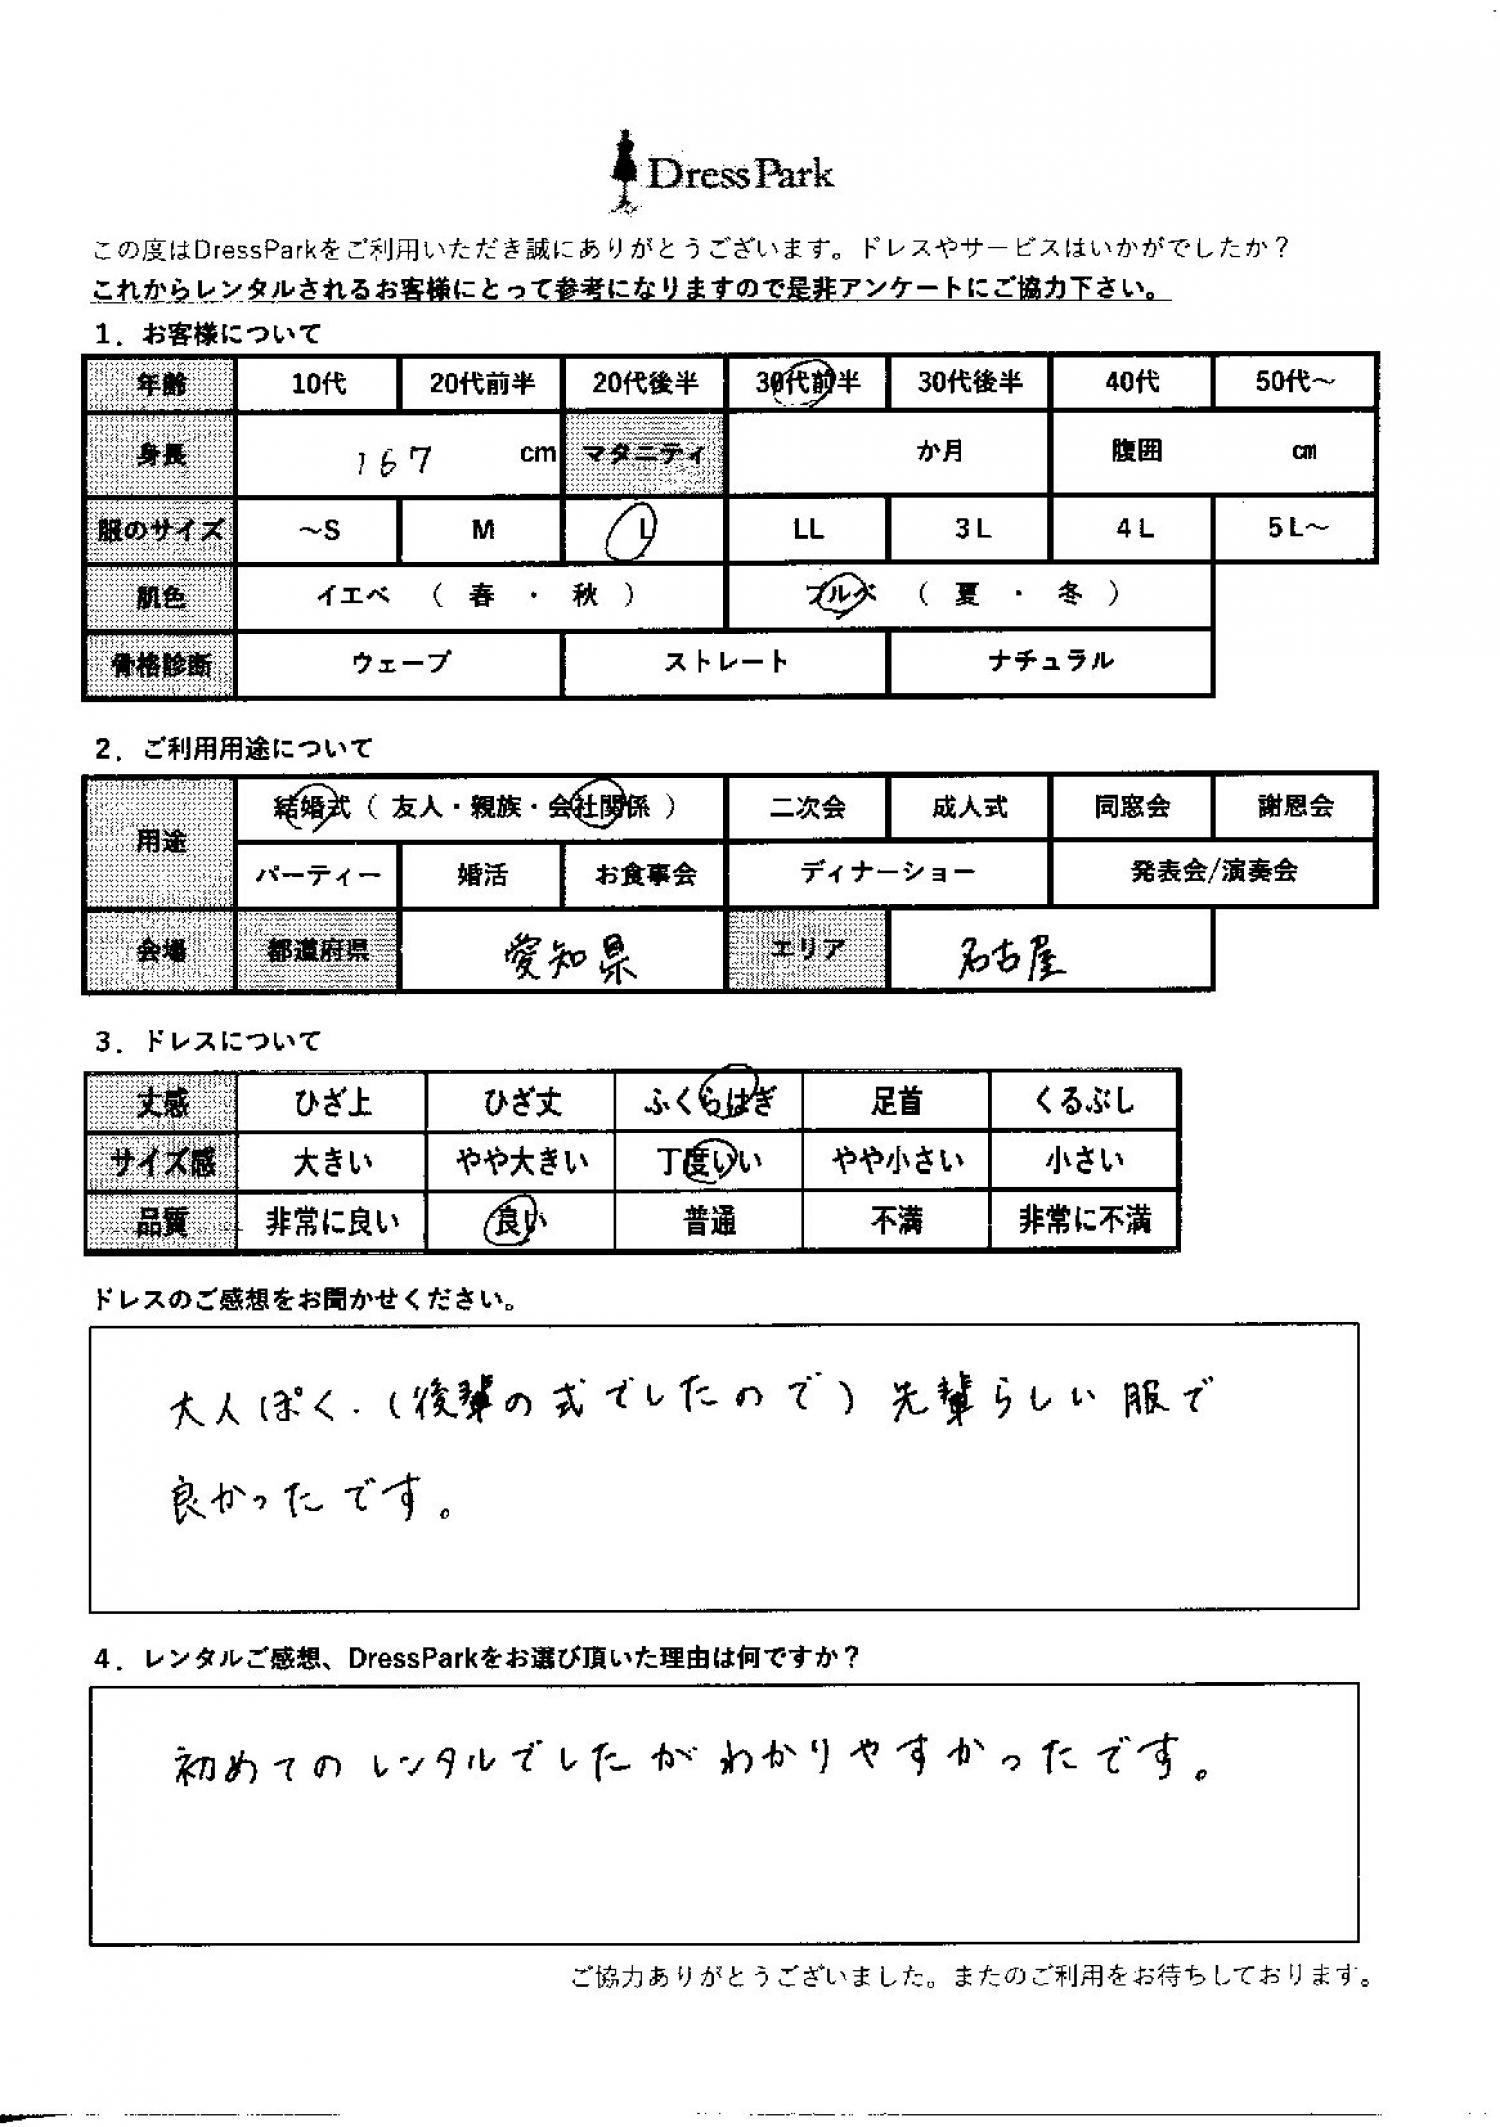 DressPark
この度はDressParkをご利用いただき誠にありがとうございます。ドレスやサービスはいかがでしたか？
これからレンタルされるお客様にとって参考になりますので是非アンケートにご協力下さい。
1．お客様について
年齢 10代 20代前半 20代後半 30代前半 30代後半 40代 50代～
身長 167 cm マタニティ か月 腹囲 cm
服のサイズ ～S M L LL 3L 4L 5L～
肌色 イエベ （ 春 ・ 秋 ） ブルベ （ 夏 ・ 冬 ）
骨格診断 ウェーブ ストレート ナチュラル
2．ご利用用途について
用途 結婚式（ 友人・親族・会社関係 ） 二次会 成人式 同窓会 謝恩会
パーティー 婚活 お食事会 ディナーショー 発表会/演奏会
会場 都道府県 愛知県 エリア 名古屋
3．ドレスについて
丈感 ひざ上 ひざ丈 ふくらはぎ 足首 くるぶし
サイズ感 大きい やや大きい 丁度いい やや小さい 小さい
品質 非常に良い 良い 普通 不満 非常に不満
ドレスのご感想をお聞かせください。
大人ぽく.(後輩の式でしたので)先輩らしい服で
良かったです。
4．レンタルご感想、DressParkをお選び頂いた理由は何ですか？
初めてのレンタルでしたがわかりやすかったです。
ご協力ありがとうございました。またのご利用をお待ちしております。